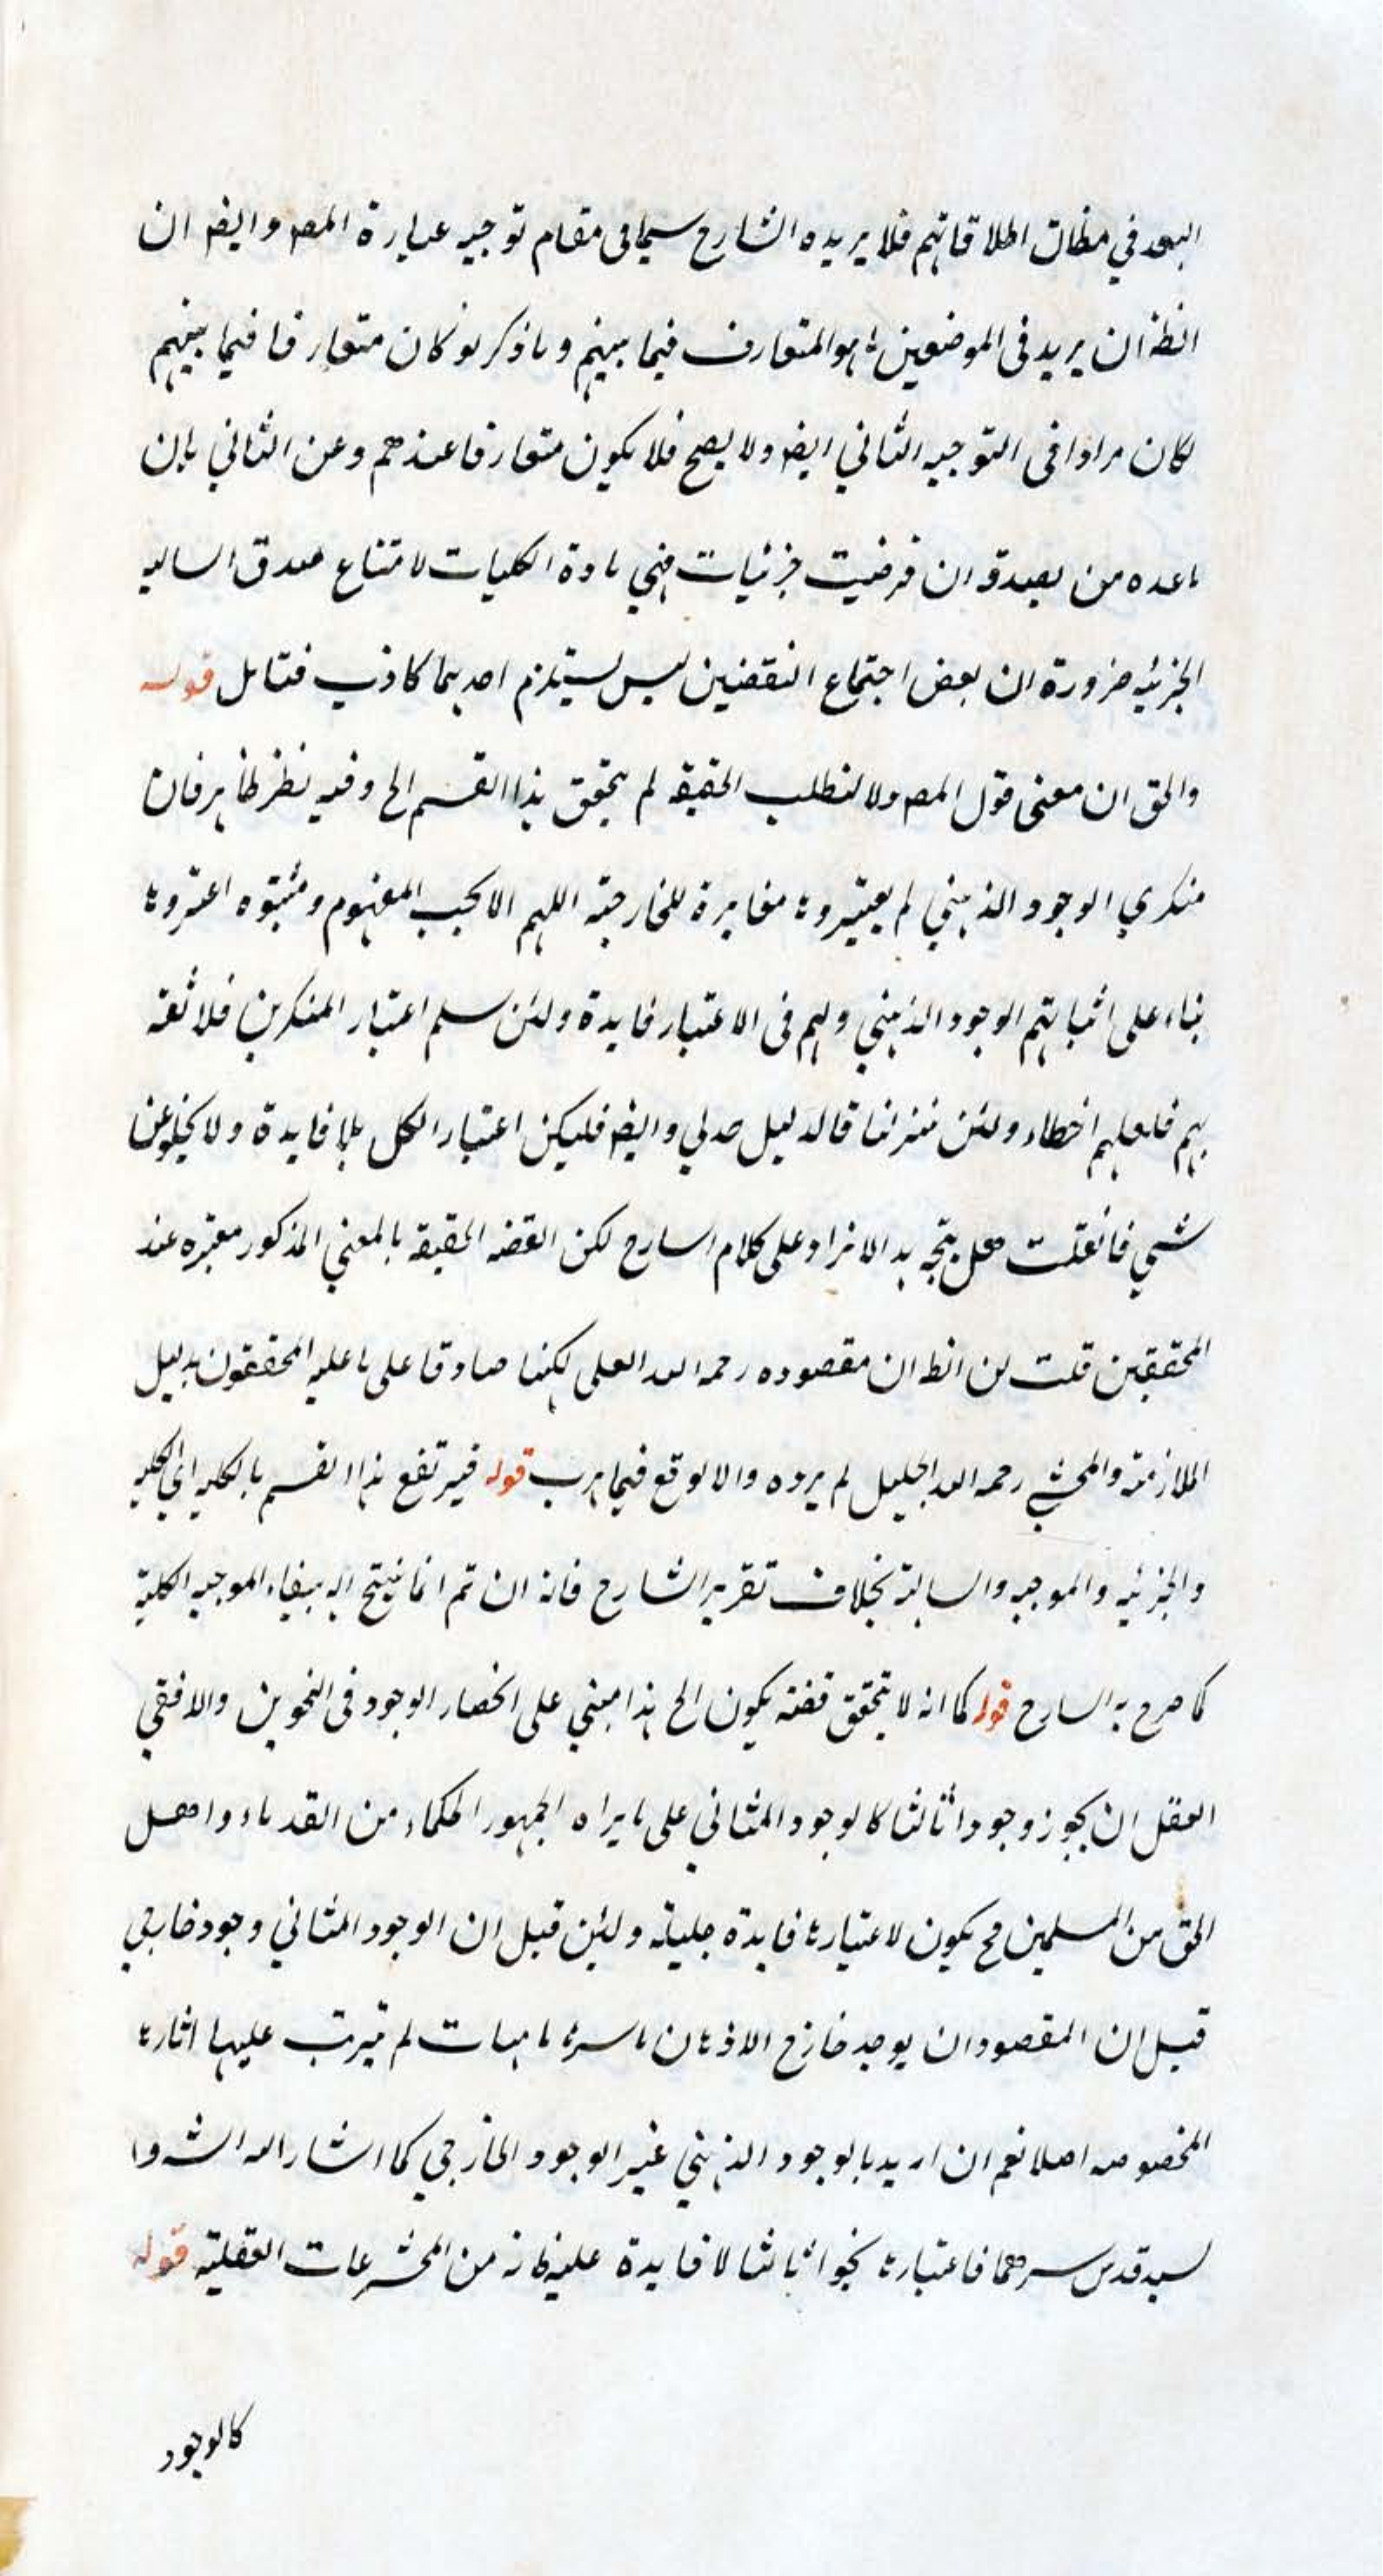 البعد في مظان اطلاقاتهم فلا يريده الشارح سيما في مقام توجيه عبارة المصـ وايضـ ان
الظـ ان يريد في الموضعين ما هو المتعارف فيما بينهم وما ذكر لو كان متعارفا فيما بينهم
لكان مرادا في التوجيه الثاني ايضـ ولا يصح فلا يكون متعارفا عندهم وعن الثاني بان
ما عده من بعيدة وان فرضيت جزئيات فهي مادة الكليات لامتناع صدق السالبه
الجزئيه ضرورة ان بعض اجتماع النقضين ليس يستلزم احديهما كاذب فتامل قوله
والحق ان معنى قول المصـ ولا لنطلب الحقيقه لم يتحقق هذا القسم الخ وفيه نظر ظاهر فان
منكري الوجود الذهني لم يعتبروها مغايرة للخارجية اللهم الا بحسب المفهوم ومثبتوه اعتبروها
بناء على اثباتهم الوجود الذهني ولهم في الاعتبار فايدة ولئن سلم اعتبار المنكرين فلا ثقه
بهم فلعلهم اخطاء ولئن تنزلنا قالدليل جدلي وايضـ فليكن اعتبار الكل بلا فايدة ولا يخلو عن
شيء فانقلت هل يتجه بد الايراد على كلام السارح لكن القضه الحقيقه بالمعني المذكور معتبره عند
المحققين قلت لن الظـ ان مقصوده رحمه الله العلى لكنها صادقا على ما عليه المحققون بدليل
الملازمة والمحشي رحمه الله الجليل لم يرده والا لوقع فيما هرب قوله فيرتفع هذا القسم بالكليه اي الكليه
والجزئيه والموجبه والسالبة بخلاف تقرير الشارح فانه ان تم انما ينتج انه ينفاء الموجبه الكلية
كما صرح به السارح قوله كما انه لا يتحقق قضة يكون الخ هذا مبني على انحصار الوجود في النحوين والا فقي
العقل ان يجوز وجودا ثالثا كالوجود المثالي على ما يراه الجمهور الحكماء من القدماء واهل
الحق من المسلمين فح يكون لاعتبارها فايدة جليلة ولئن قيل ان الوجود المثالي وجود خارجي
قيل ان المقصود ان يوجد خارج الاذهان باسرها ماهيات لم يترتب عليها اثارها
المخصوصه اصلا نعم ان اريد بالوجود الذهني غير الوجود الخارجي كما اشار اليه الشـ وا
لسيد قدس سرهما فاعتبارها نحوا ثالثا لا فايدة عليه فانه من المخترعات العقلية قوله
كالوجود